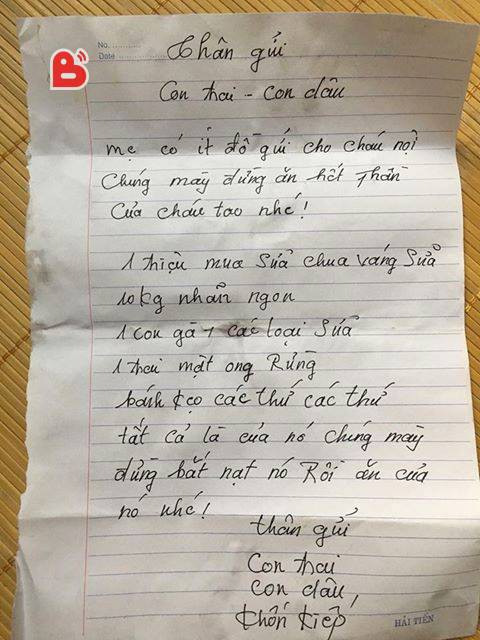 B
No. ..........
Date ..........
Thân gửi
Con trai - con dâu
mẹ có ít đồ gửi cho cháu nội
Chúng mày đừng ăn hết phần
Của cháu tao nhé!
1 triệu mua sữa chua váng sữa
10kg nhãn ngon
1 con gà + các loại sữa
1 chai mật ong Rừng
bánh kẹo các thứ các thứ
tất cả là của nó chúng mày
đừng bắt nạt nó Rồi ăn của
nó nhé!
thân gửi
Con trai
Con dâu,
khốn kiếp
HẢI TIẾN